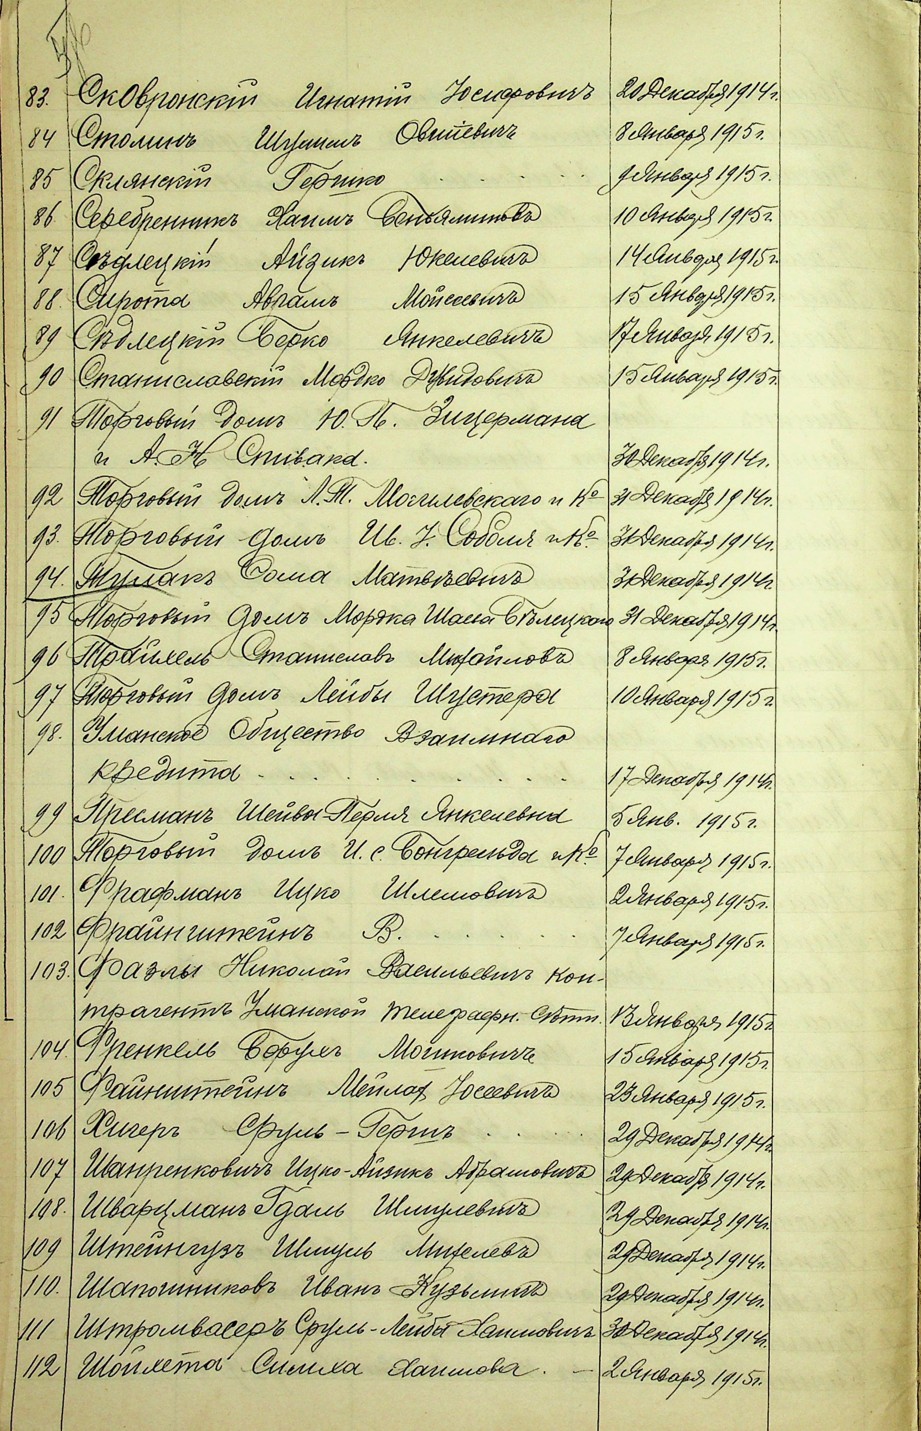 83. Сковронскій Игнатій Іосифовичъ 20 Декабря 1914 г.
84 Столинъ Шулимъ Овшіевичъ 8 Января 1915 г.
85 Склянскій Гершко . . . . . 9 Января 1915 г.
86 Серебренникъ Хаимъ Беньяминовъ 10 Января 1915 г.
87 Сѣдлецкій Айзикъ Юкелевичъ 14 Января 1915 г.
88. Сирота Авгамъ Мойсеевичъ 15 Января 1915 г.
89 Сѣдлецкій Берко Янкелевичъ 17 Января 1915 г.
90 Станиславскій Мордко Дувидовичъ 15 Января 1915 г.
91 Торговый Домъ Ю. П. Зицермана
и А. Н. Спивака. 30 Декабря 1914 г.
92 Торговый домъ Л. Т. Могилевскаго и Кº 31 Декабря 1914 г.
93. Торговый домъ Ив. І. Соболя и Кº. 31 Декабря 1914 г.
94. Тулакъ Сома Матвѣевичъ 31 Декабря 1914 г.
95 Торговый домъ Моржка Шаева Бѣлецкаго 31 Декабря 1914 г.
96 Трайхель Станиславъ Михайловъ 8 Января 1915 г.
97 Торговый домъ Лейбы Шустера 10 Января 1915 г.
98. Уманское Общество Взаимнаго
кредита . . . . . . . . 17 Декабря 1914 г.
99 Пресманъ Шейва-Перля Янкелевна 5 Янв. 1915 г.
100 Торговый домъ И. С. Бонгрельда и Кº. 7 Января 1915 г.
101. Фрафманъ Ицко Шлемовичъ 2 Января 1915 г.
102 Фрайнштейнъ В. . . . . . 7 Января 1915 г.
103. Фазлы Николай Васильевичъ кон-
трагентъ Уманской телеграфн. Сѣти. 13 Января 1915 г.
104. Френкель Борухъ Мошковичъ 15 Января 1915 г.
105 Файнштейнъ Мейлах Іосеевичъ 23 Января 1915 г.
106 Хигеръ Сруль-Гершъ . . . . 29 Декабря 1914 г.
107 Шапренковичъ Ицко-Айзикъ Абрамовичъ 29 Декабря 1914 г.
108. Шварцманъ Гдаль Шмулевичъ 29 Декабря 1914 г.
109 Штейнгузъ Шмуль Михелевъ 29 Декабря 1914 г.
110. Шапошниковъ Иванъ Кузьмичъ 29 Декабря 1914 г.
111 Штромвасеръ Сруль-Лейба Хаимовичъ 31 Декабря 1914 г.
112 Шойхета Симха Хаимова. — 2 Января 1915 г.